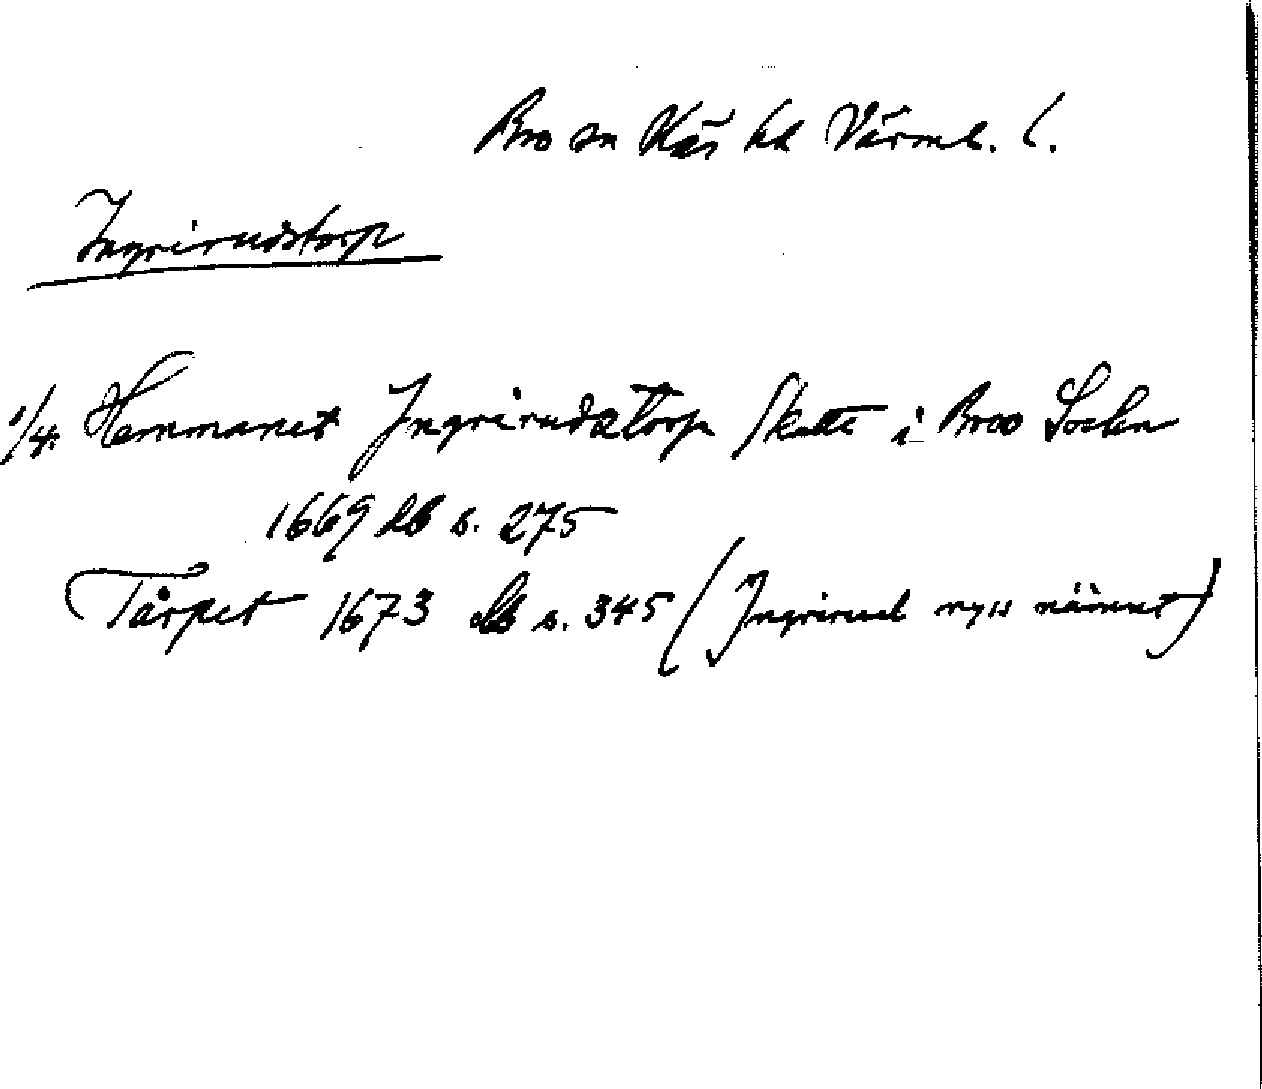 Bro sn Näs hd Värml. l.
Ingrirudstorp
1/4. Hemmanet Ingrirudztorp Skatte i Broo Sockn
1669 Lb s. 275
Tårpet 1673 Lb s. 345 (Ingrirud nyss nämnt)